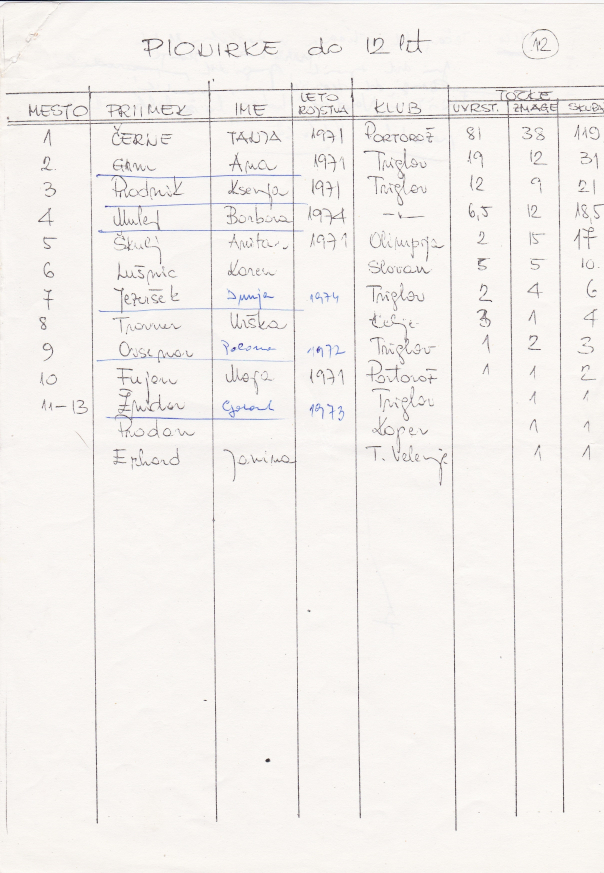 PIONIRKE do 12 let 12
MESTO PRIIMEK IME LETO ROJSTVA KLUB TOČKE UVRST. ZMAGE SKUPA
1 ČERNE TANJA 1971 PORTOROŽ 81 38 119
2. Grm Ana 1971 Triglav 19 12 31
3 Prodnik Ksenja 1971 Triglav 12 9 21
4 Mulej Barbara 1974 -"- 6,5 12 18,5
5 Škulj Anita 1971 Olimpija 2 15 17
6 Lušnic Karen Slovan 5 5 10
7 Jezeršek Dunja 1974 Triglav 2 4 6
8 Travner Urška Celje 3 1 4
9 Ovsenar Polona 1972 Triglav 1 2 3
10 Fujan Maja 1971 Portorož 1 1 2
11-13 Žnidar 1973 Triglav 1 1
Prodan Koper 1 1
Erhard Janina T. Velenje 1 1